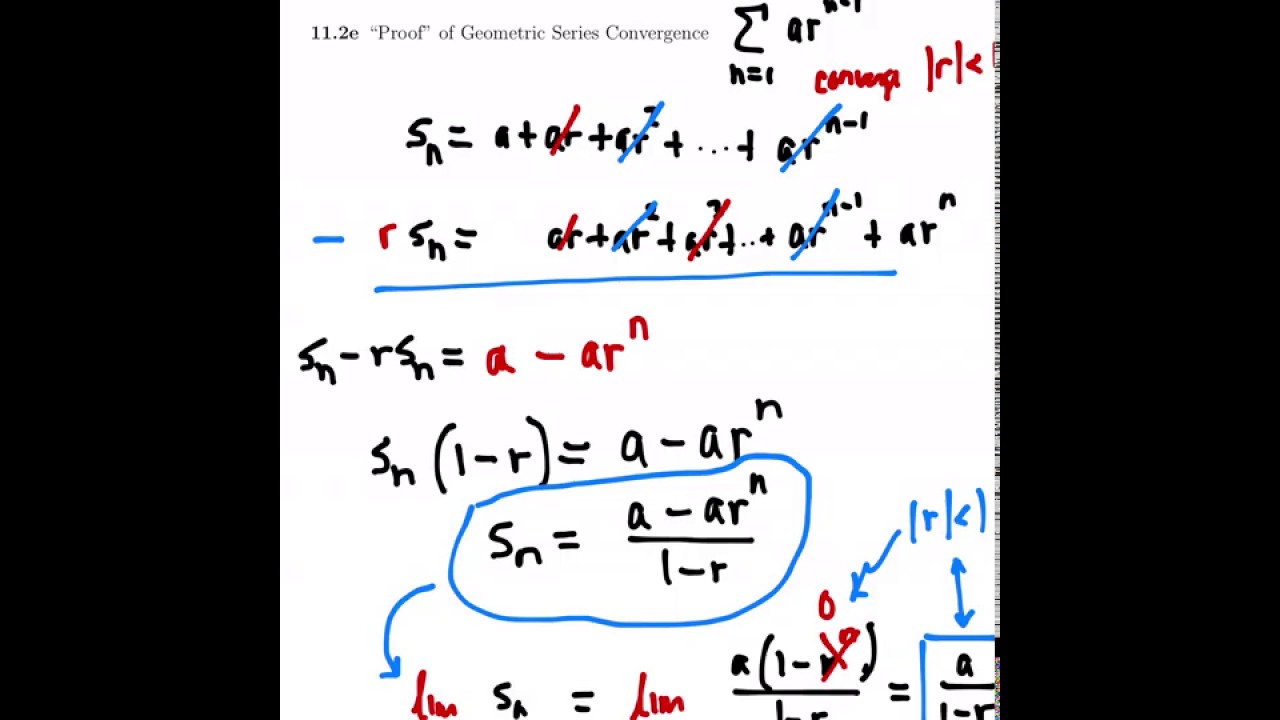 11.2e “Proof” of Geometric Series Convergence
∑ arⁿ⁻¹
n=1
converge |r|<
Sₙ = a + ar + ar² + ... + arⁿ⁻¹
− r Sₙ = ar + ar² + ar³ + .. + arⁿ⁻¹ + arⁿ
Sₙ − rSₙ = a − arⁿ
Sₙ (1−r) = a − arⁿ
Sₙ = (a − arⁿ)/(1−r)
|r|<1
0
lim Sₙ = lim a(1−rⁿ)/(1−r) = a/(1−r)